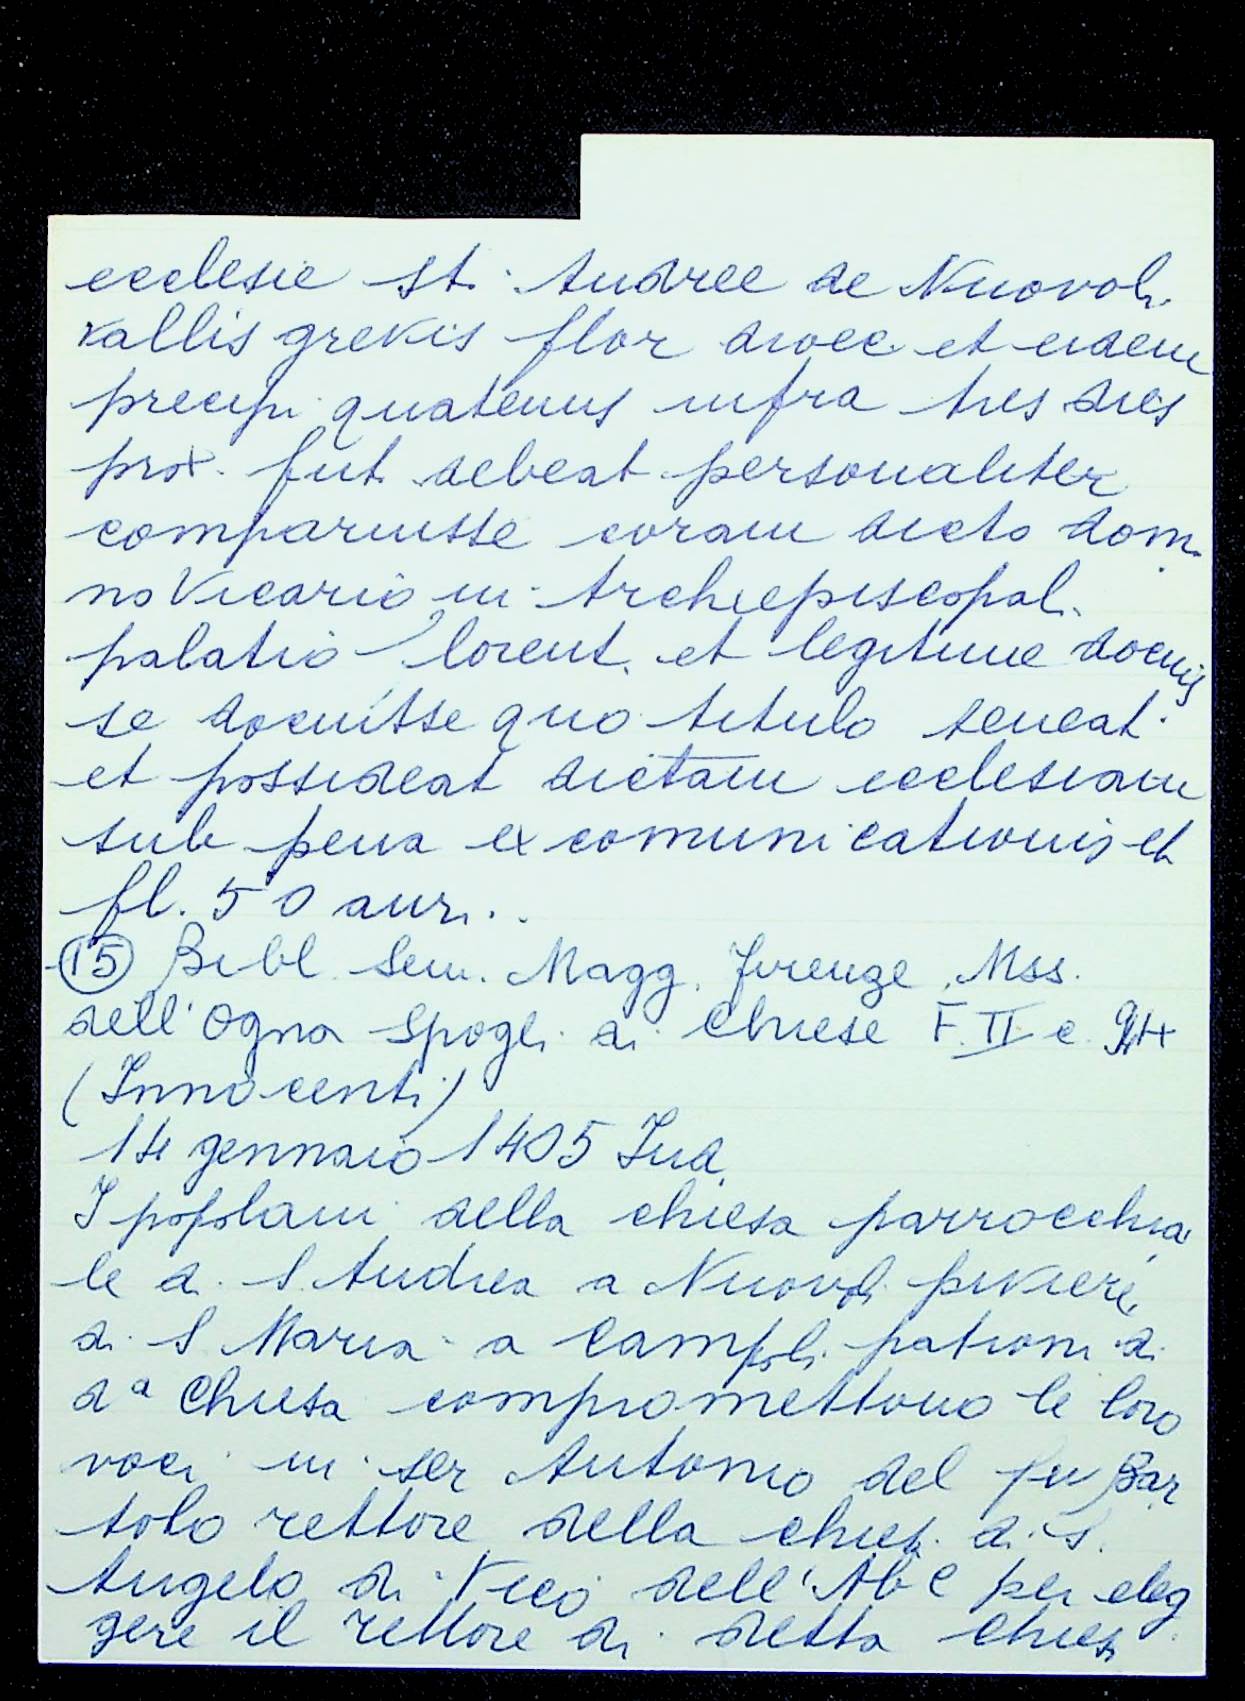 ecclesie St. Andree de Nuovoli
vallis grevis flor dioec. et eidem
precipi quatenus infra tres dies
prox. fut. debeat personaliter
comparuisse coram dicto domi
no Vicario in Archiepiscopali
palatio florent. et legitime docuis
se docuisse quo titulo teneat
et possideat dictam ecclesiam
sub pena excomunicationis et
fl. 50 auri..
(15) Bibl Sem. Magg. Firenze Mss.
dell'Ogna Spogli di Chiese F. II c.
(Innocenti)
14 gennaio 1405 Ind.
I popolani della chiesa parrocchia
le di S. Andrea a Nuovoli piviere
di S Maria a Campoli patroni di
da Chiesa compromettono le loro
voci in ser Antonio del fu Bar
tolo rettore della chies. di S.
Angelo di Vico dell'Ab C per eleg
gere il rettore di detta chies